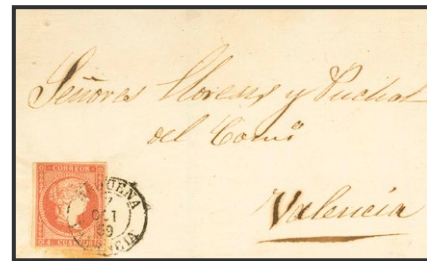 Señores Llorens y Puchal
del Comº
Valencia
CORREOS
OCT
59
4 CUARTOS